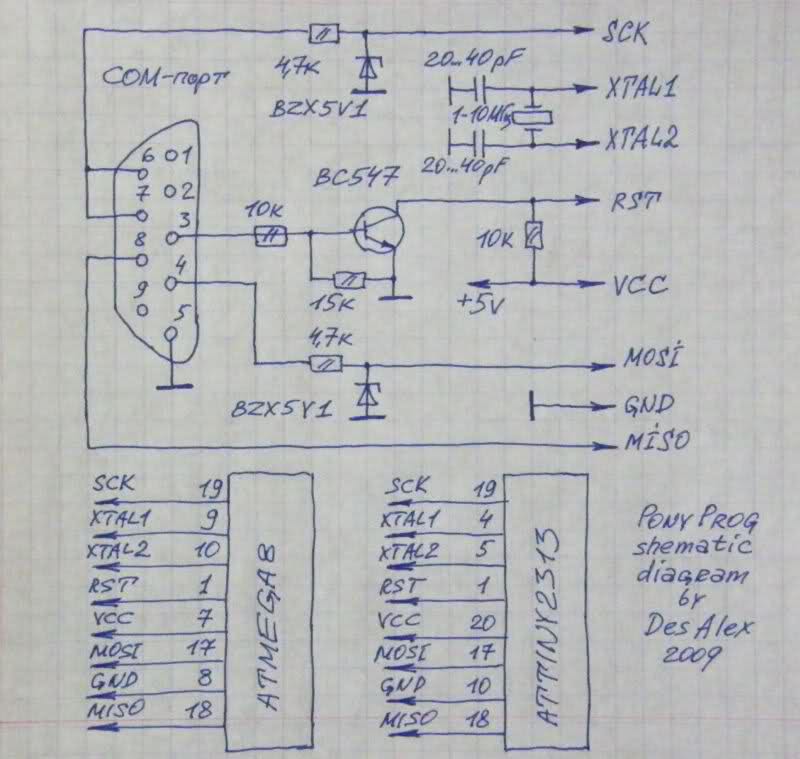 SCK
4,7к
20...40pF
COM-порт
BZX5V1
XTAL1
1-10МГц
XTAL2
20...40pF
BC547
6 1
7 2
3
8
4
9
5
10к
RST
10к
15к
+5V
VCC
4,7к
MOSİ
BZX5V1
GND
MİSO
SCK 19
XTAL1 9
XTAL2 10
RST 1
VCC 7
MOSI 17
GND 8
MISO 18
ATMEGA8
SCK 19
XTAL1 4
XTAL2 5
RST 1
VCC 20
MOSI 17
GND 10
MISO 18
ATTINY2313
PONY PROG
shematic
diagram
by
Des Alex
2009